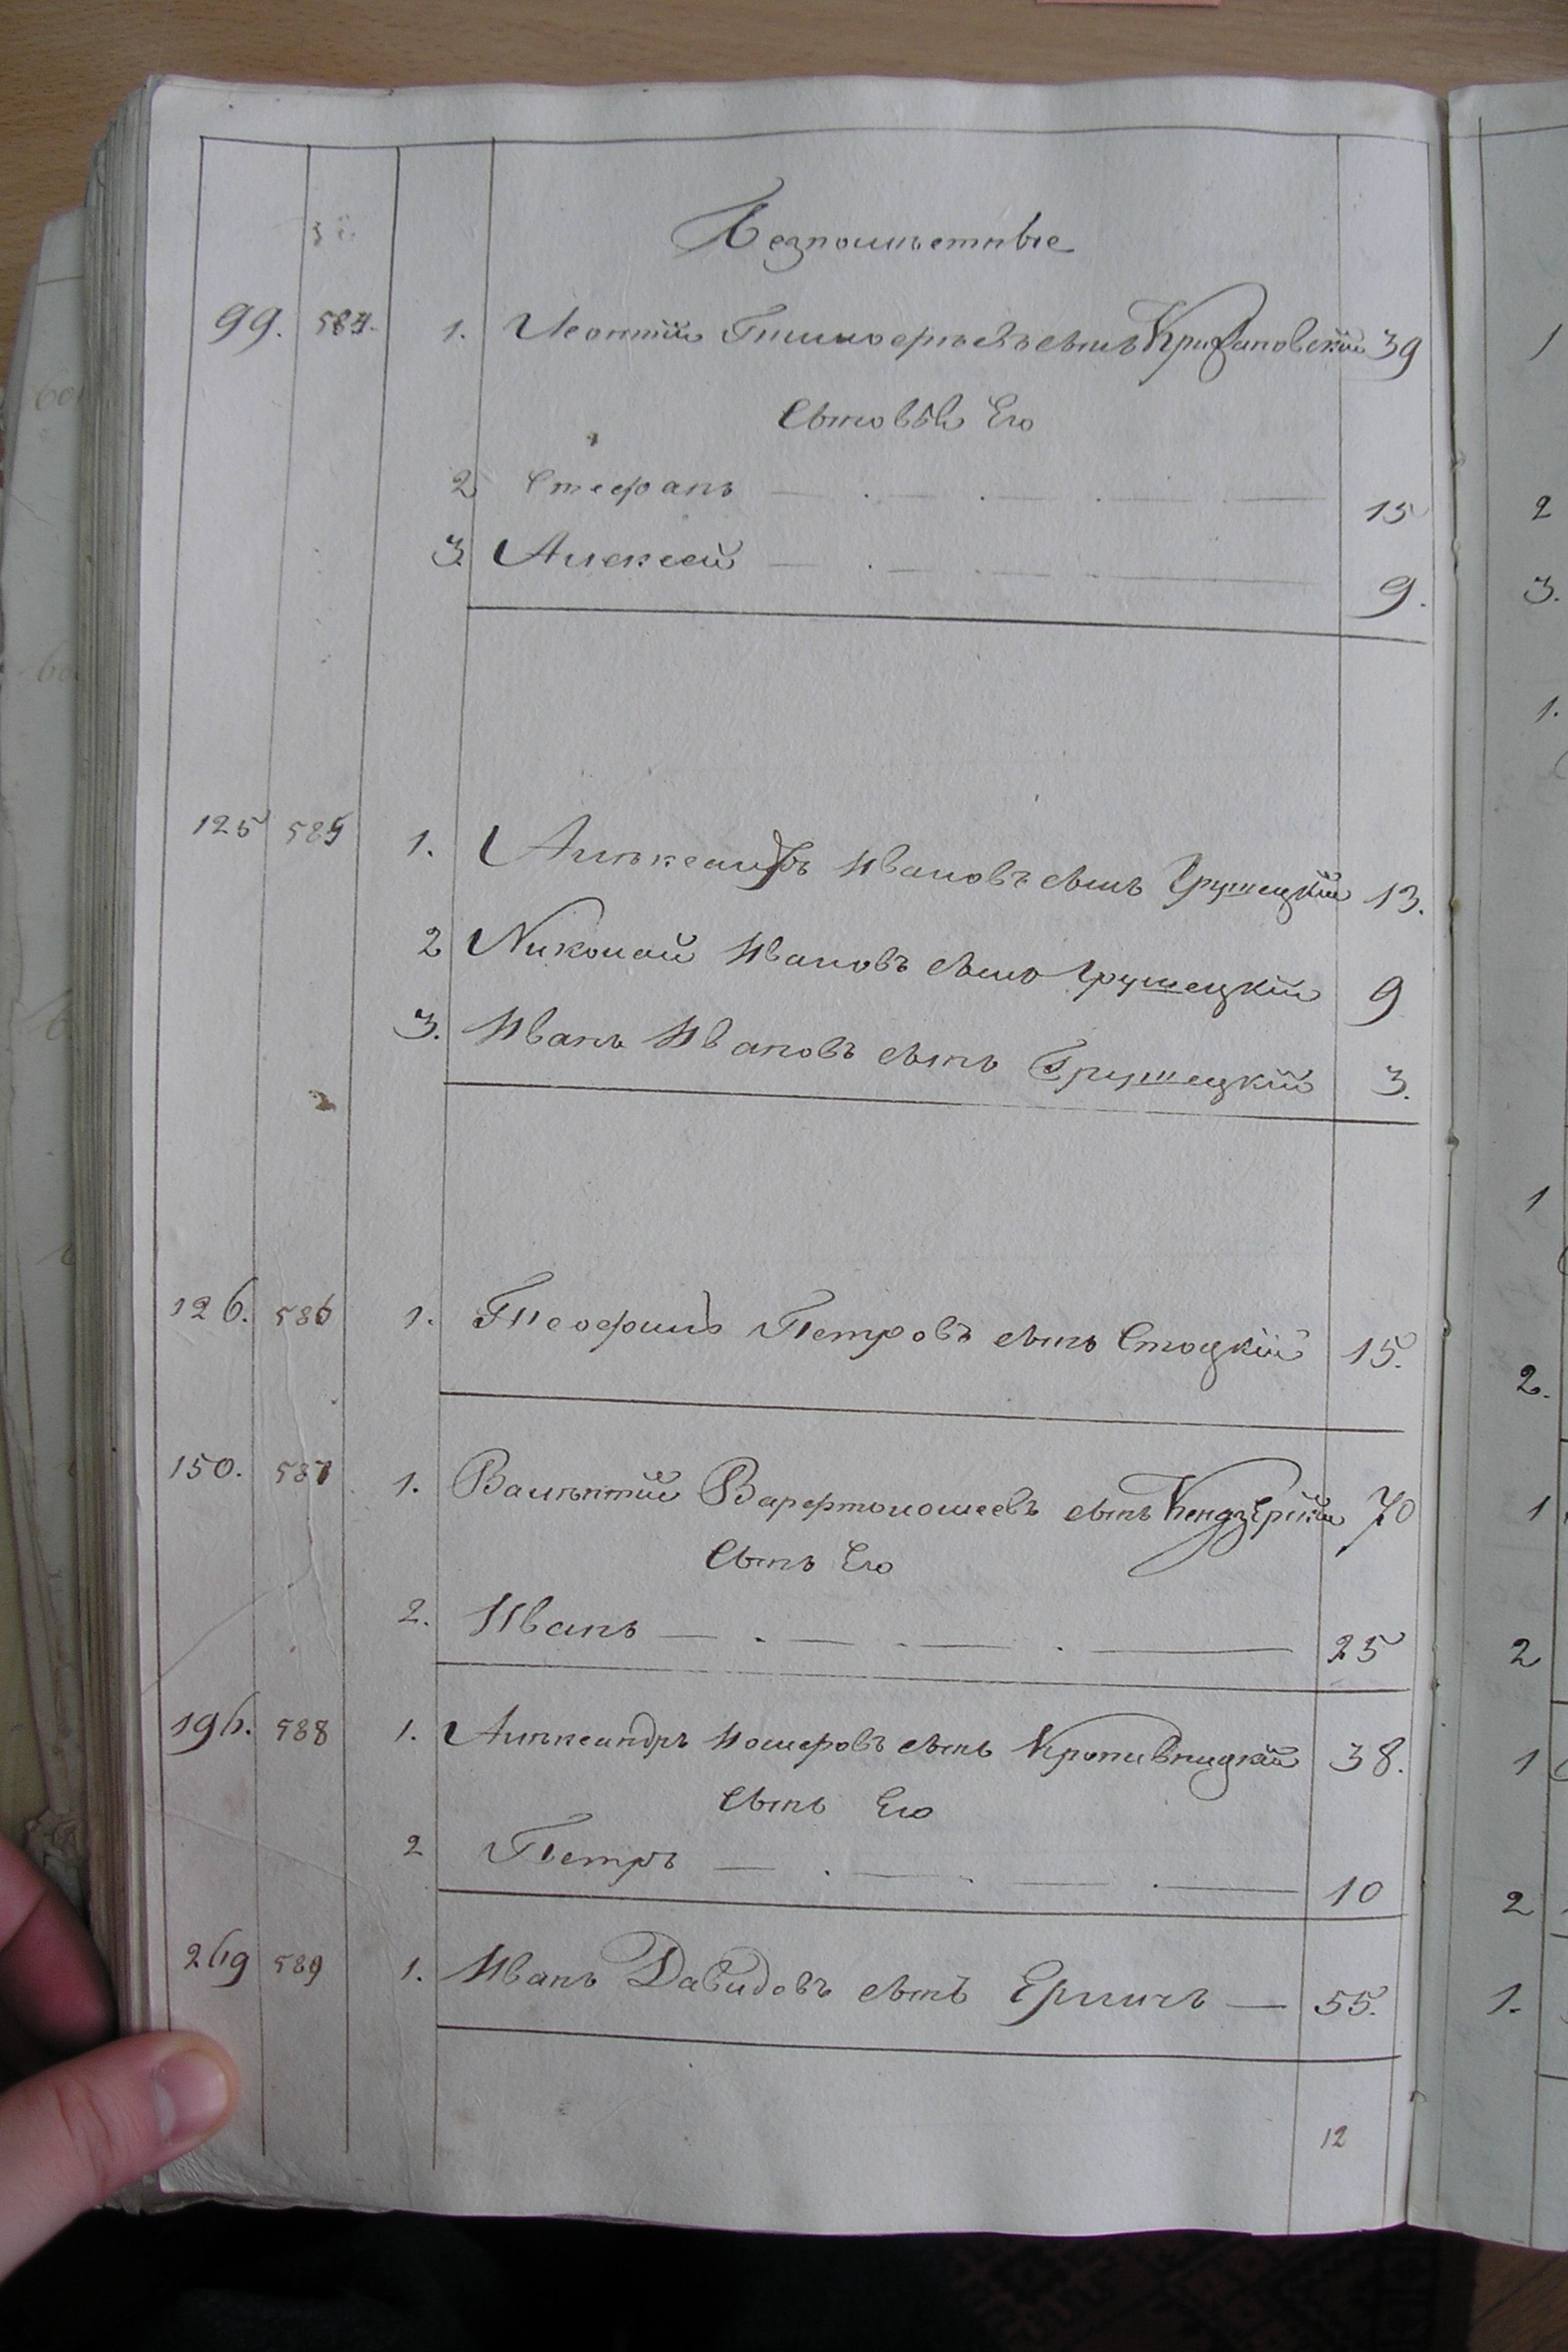 Безпоместные
99. 584. 1. Леонтій Тимофеевъ сынъ Крижановскій 39
Сыновья Его
2 Стефанъ 15
3. Алексей 9.
125 585 1. Александръ Ивановъ сынъ Грушецкій 13.
2 Николай Ивановъ сынъ Грушецкій 9
3. Иванъ Ивановъ сынъ Грушецкій 3.
126. 586 1. Теофилъ Петровъ сынъ Стоцкій 15.
150. 587 1. Валентій Варфтоломеевъ сынъ Кендзерскій 70
Сынъ Его
2. Иванъ 25
196. 588 1. Александръ сынъ Кропивницкій 38.
Сынъ Его
2 Петръ 10
269 589 1. Иванъ Давидовъ сынъ 55.
12
1
2
3.
1.
1
2.
1
2
1
2
1.